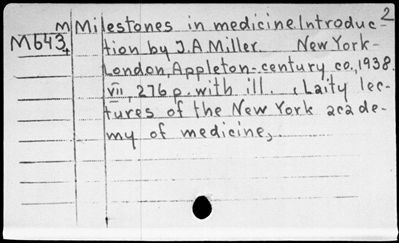 M Milestones in medicine. Introduc- 2
M643 tion by J.A Miller. New York-
London, Appleton-century co., 1938.
VII, 276 p. with ill. (Laity lec-
tures of the New York acade-
my of medicine,